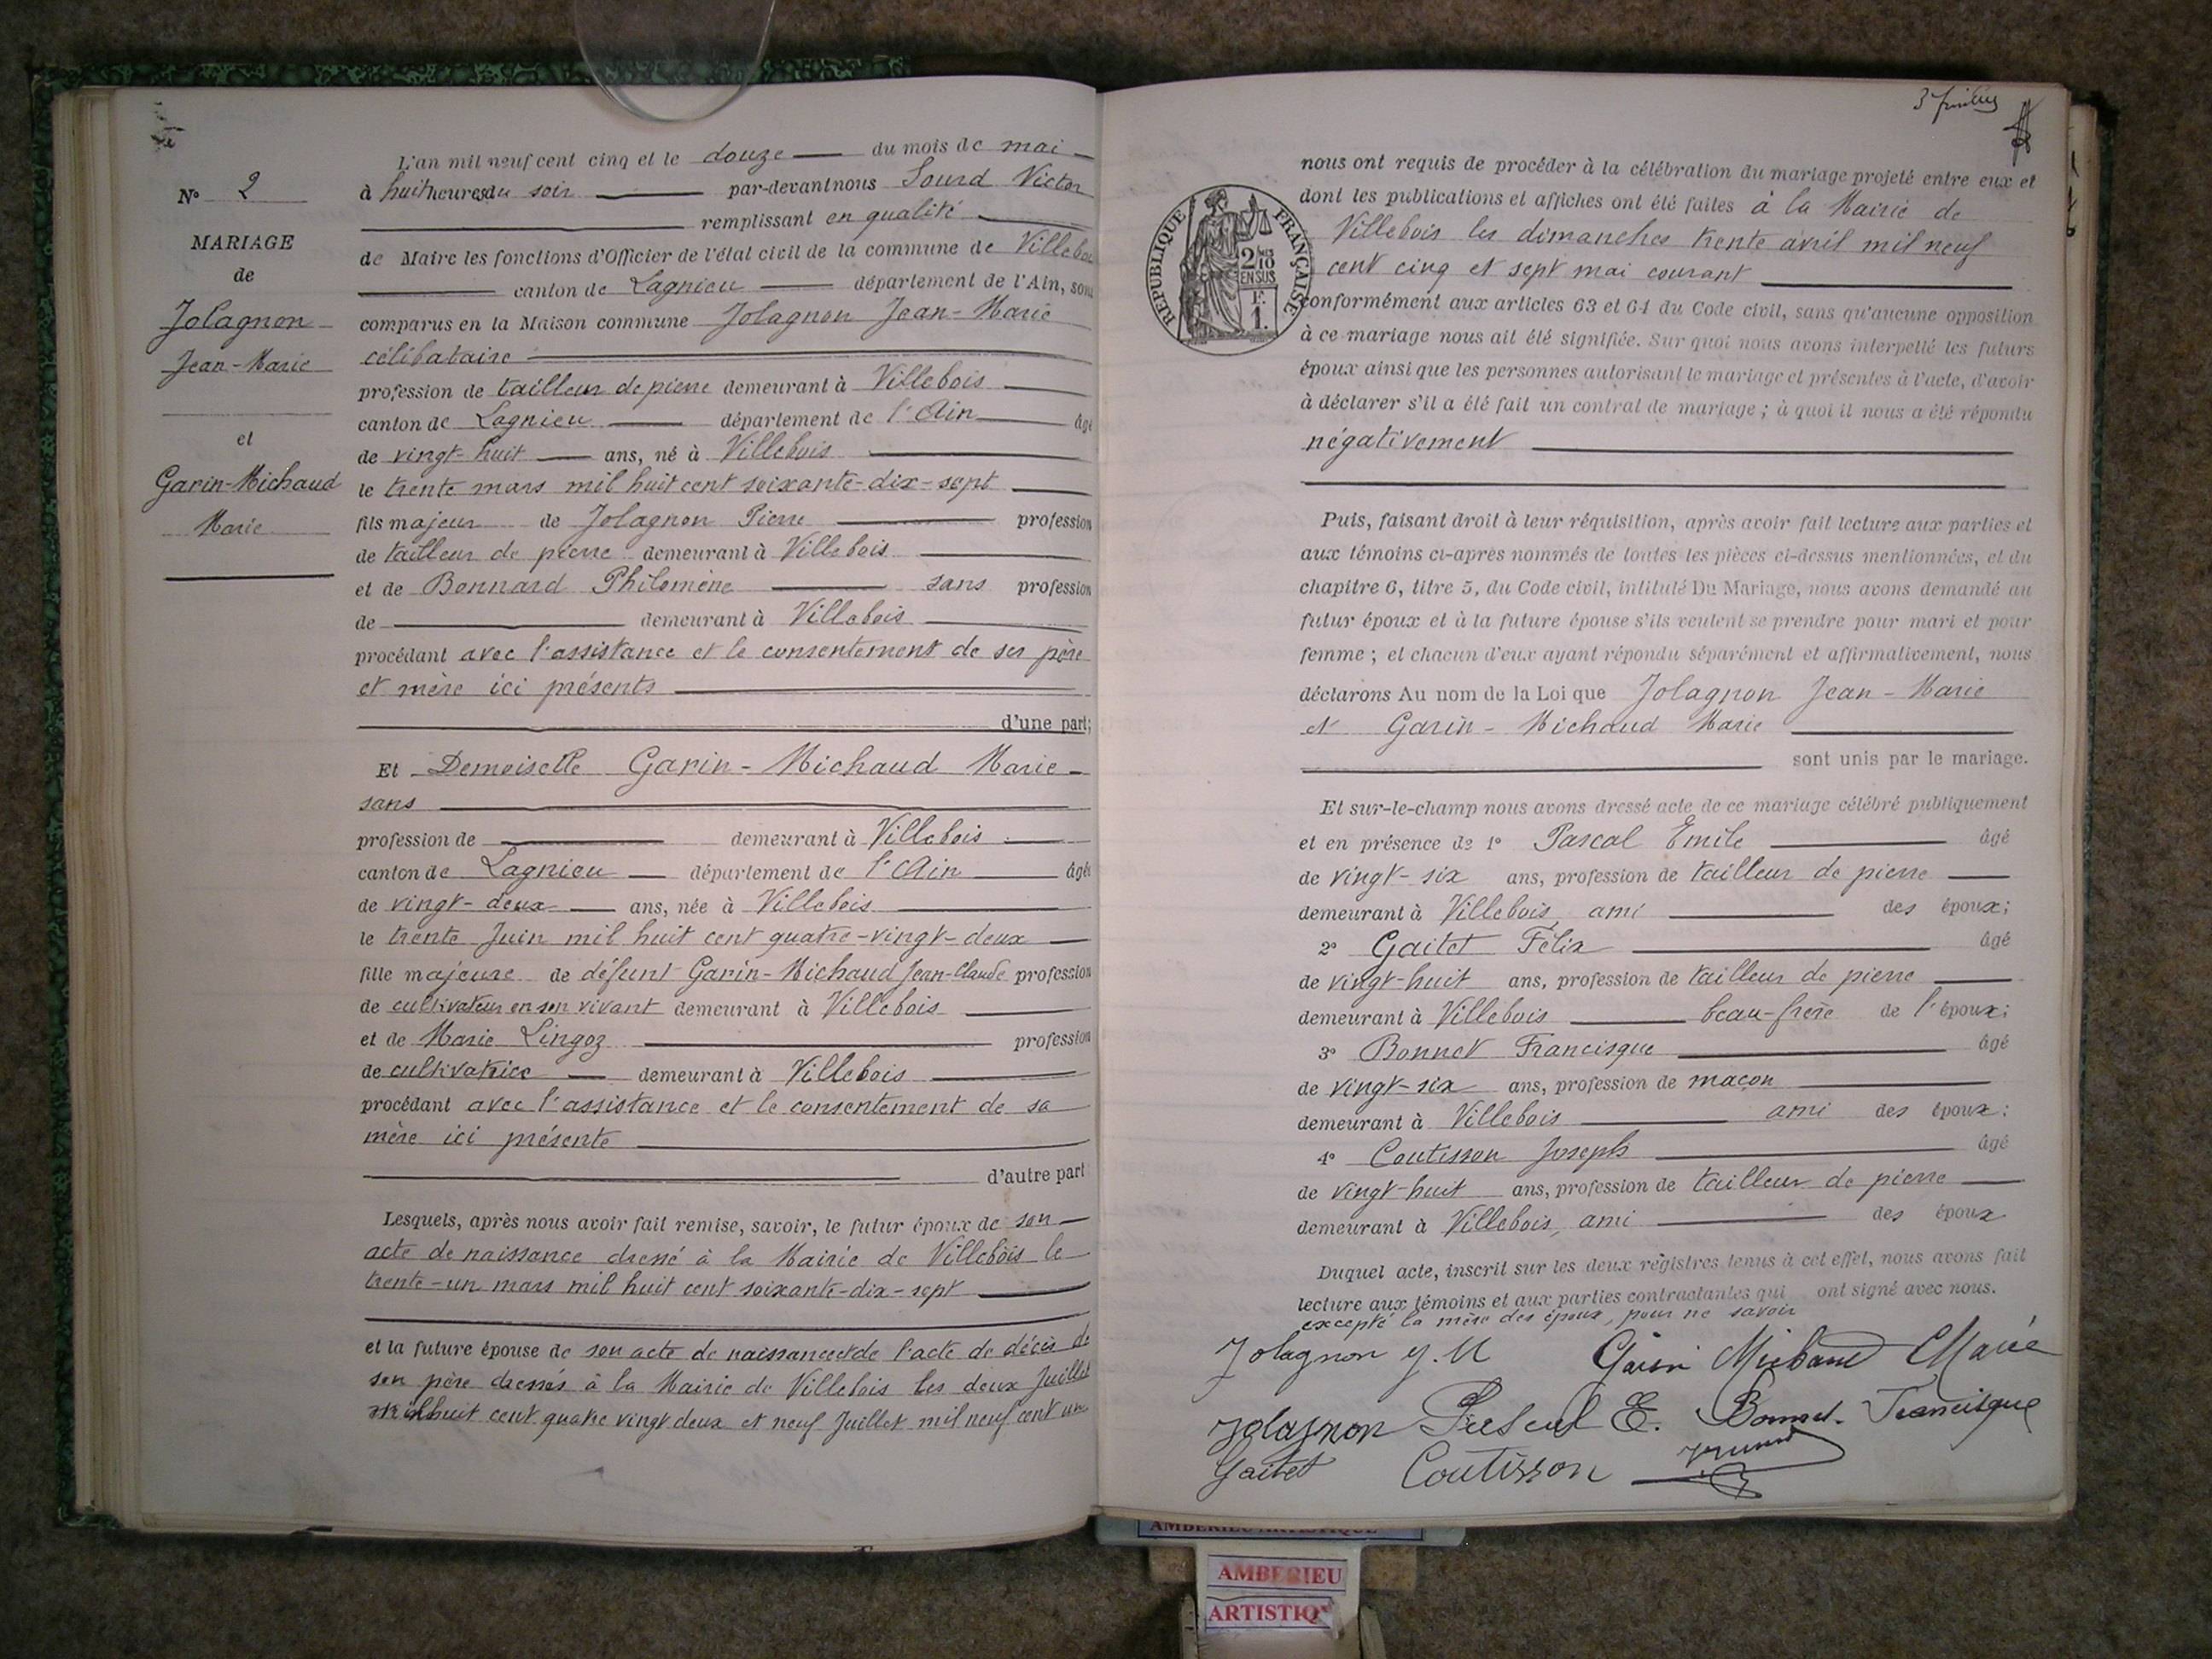 N° 2
MARIAGE
de
Jolagnon
Jean-Marie
et
Garin-Michaud
Marie
L'an mil neuf cent cinq et le douze du mois de mai
à huit heures du soir par-devant nous Sourd Victor
remplissant en qualité
de Maire les fonctions d'Officier de l'état civil de la commune de Villebois
canton de Lagnieu département de l'Ain, sont
comparus en la Maison commune Jolagnon Jean-Marie
célibataire
profession de tailleur de pierre demeurant à Villebois
canton de Lagnieu département de l'Ain âgé
de vingt-huit ans, né à Villebois
le trente mars mil huit cent soixante-dix-sept
fils majeur de Jolagnon Pierre profession
de tailleur de pierre demeurant à Villebois
et de Bonnard Philomène sans profession
de demeurant à Villebois
procédant avec l'assistance et le consentement de ses père
et mère ici présents
d'une part;
Et Demoiselle Garin-Michaud Marie
sans
profession de demeurant à Villebois
canton de Lagnieu département de l'Ain âgée
de vingt-deux ans, née à Villebois
le trente Juin mil huit cent quatre-vingt-deux
fille majeure de défunt Garin-Michaud Jean-Claude profession
de cultivateur en son vivant demeurant à Villebois
et de Marie Lingoz profession
de cultivatrice demeurant à Villebois
procédant avec l'assistance et le consentement de sa
mère ici présente
d'autre part
Lesquels, après nous avoir fait remise, savoir, le futur époux de son
acte de naissance dressé à la Mairie de Villebois le
trente-un mars mil huit cent soixante-dix-sept
et la future épouse de son acte de naissance et de l'acte de décès de
son père dressés à la Mairie de Villebois les deux Juillet
mil huit cent quatre vingt deux et neuf Juillet mil neuf cent un
REPUBLIQUE FRANÇAISE
2/10
EN SUS
F.
1.
nous ont requis de procéder à la célébration du mariage projeté entre eux et
dont les publications et affiches ont été faites à la Mairie de
Villebois les dimanches trente avril mil neuf
cent cinq et sept mai courant
conformément aux articles 63 et 64 du Code civil, sans qu'aucune opposition
à ce mariage nous ait été signifiée. Sur quoi nous avons interpellé les futurs
époux ainsi que les personnes autorisant le mariage et présentes à l'acte, d'avoir
à déclarer s'il a été fait un contrat de mariage ; à quoi il nous a été répondu
négativement
Puis, faisant droit à leur réquisition, après avoir fait lecture aux parties et
aux témoins ci-après nommés de toutes les pièces ci-dessus mentionnées, et du
chapitre 6, titre 5, du Code civil, intitulé Du Mariage, nous avons demandé au
futur époux et à la future épouse s'ils veulent se prendre pour mari et pour
femme ; et chacun d'eux ayant répondu séparément et affirmativement, nous
déclarons Au nom de la Loi que Jolagnon Jean-Marie
et Garin-Michaud Marie
sont unis par le mariage.
Et sur-le-champ nous avons dressé acte de ce mariage célébré publiquement
et en présence de 1° Pascal Emile âgé
de vingt-six ans, profession de tailleur de pierre
demeurant à Villebois, ami des époux;
2° Gaitet Félix âgé
de vingt-huit ans, profession de tailleur de pierre
demeurant à Villebois beau-frère de l'époux;
3° Bonnet Francisque âgé
de vingt-six ans, profession de maçon
demeurant à Villebois ami des époux;
4° Coutisson Joseph âgé
de vingt-huit ans, profession de tailleur de pierre
demeurant à Villebois, ami des époux
Duquel acte, inscrit sur les deux registres tenus à cet effet, nous avons fait
lecture aux témoins et aux parties contractantes qui ont signé avec nous.
excepté la mère des époux, pour ne savoir
Jolagnon J. M Garin Michaud Marie
Jolagnon Pascal E. Bonnet Francisque
Gaitet Coutisson
AMBERIEU ARTISTIQUE
AMBERIEU
ARTISTIQ